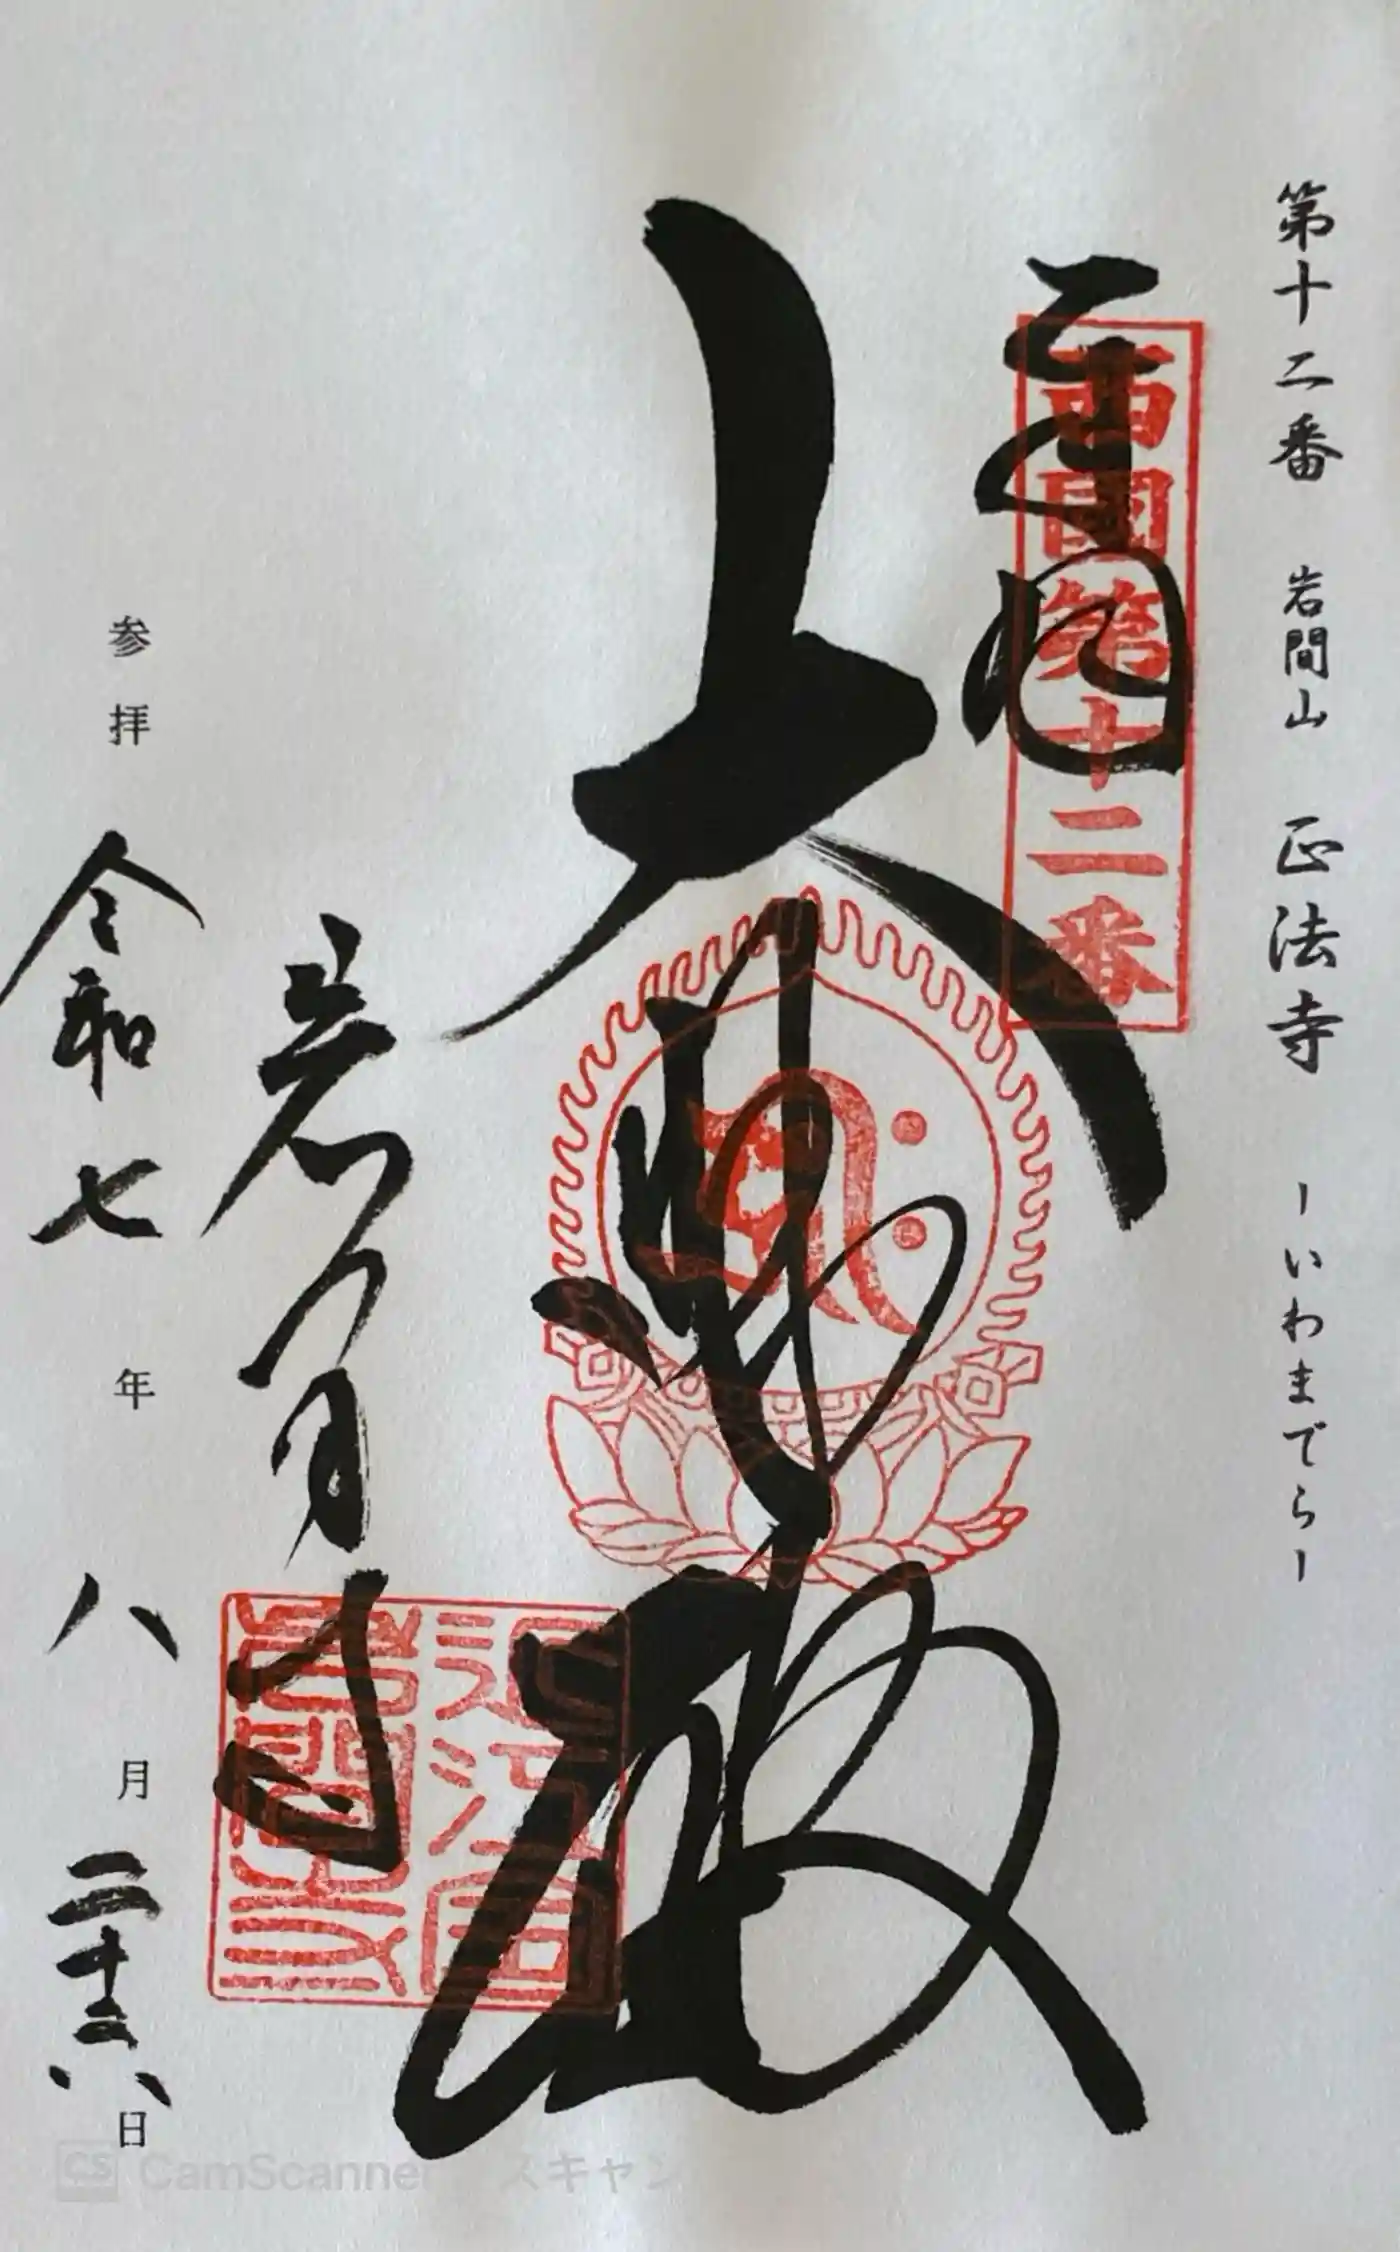 第十二番 岩間山 正法寺 ーいわまでらー
奉拝
西国第十二番
大悲殿
岩間寺
近江国
参拝 令和七年八月二十六日
CS CamScanner スキャン